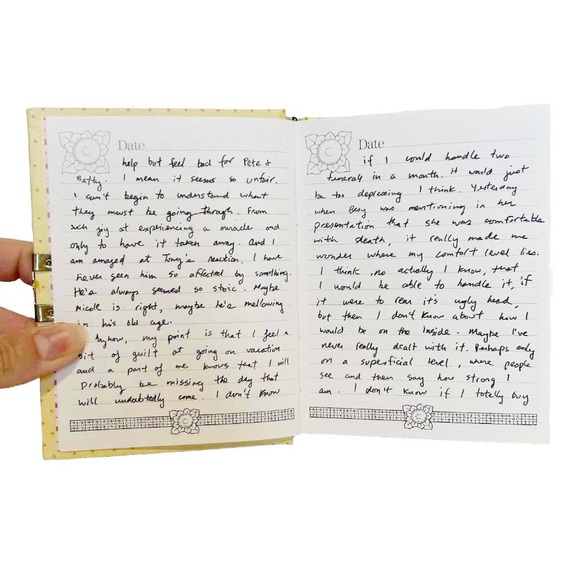 Date
help but feel bad for Pete &
Betty. I mean it seems so unfair.
I can't begin to understand what
they must be going through. From
such joy at experiencing a miracle and
only to have it taken away. And I
am amazed at Tony's reaction. I have
never seen him so affected by something.
He's always seemed so stoic. Maybe
Nicole is right, maybe he's mellowing
in his old age.
Anyhow, my point is that I feel a
bit of guilt at going on vacation
and a part of me knows that I will
probably be missing the day that
will undoubtedly come. I don't know
Date
if I could handle two
funerals in a month. It would just
be too depressing I think. Yesterday
when was mentioning in her
presentation that she was comfortable
with death, it really made me
wonder where my comfort level lies.
I think, no actually I know, that
I would be able to handle it, if
it were to rear it's ugly head,
but then I don't know about how I
would be on the inside. Maybe I've
never really dealt with it. Perhaps only
on a superficial level, where people
see and then say how strong I
am. I don't know if I totally buy